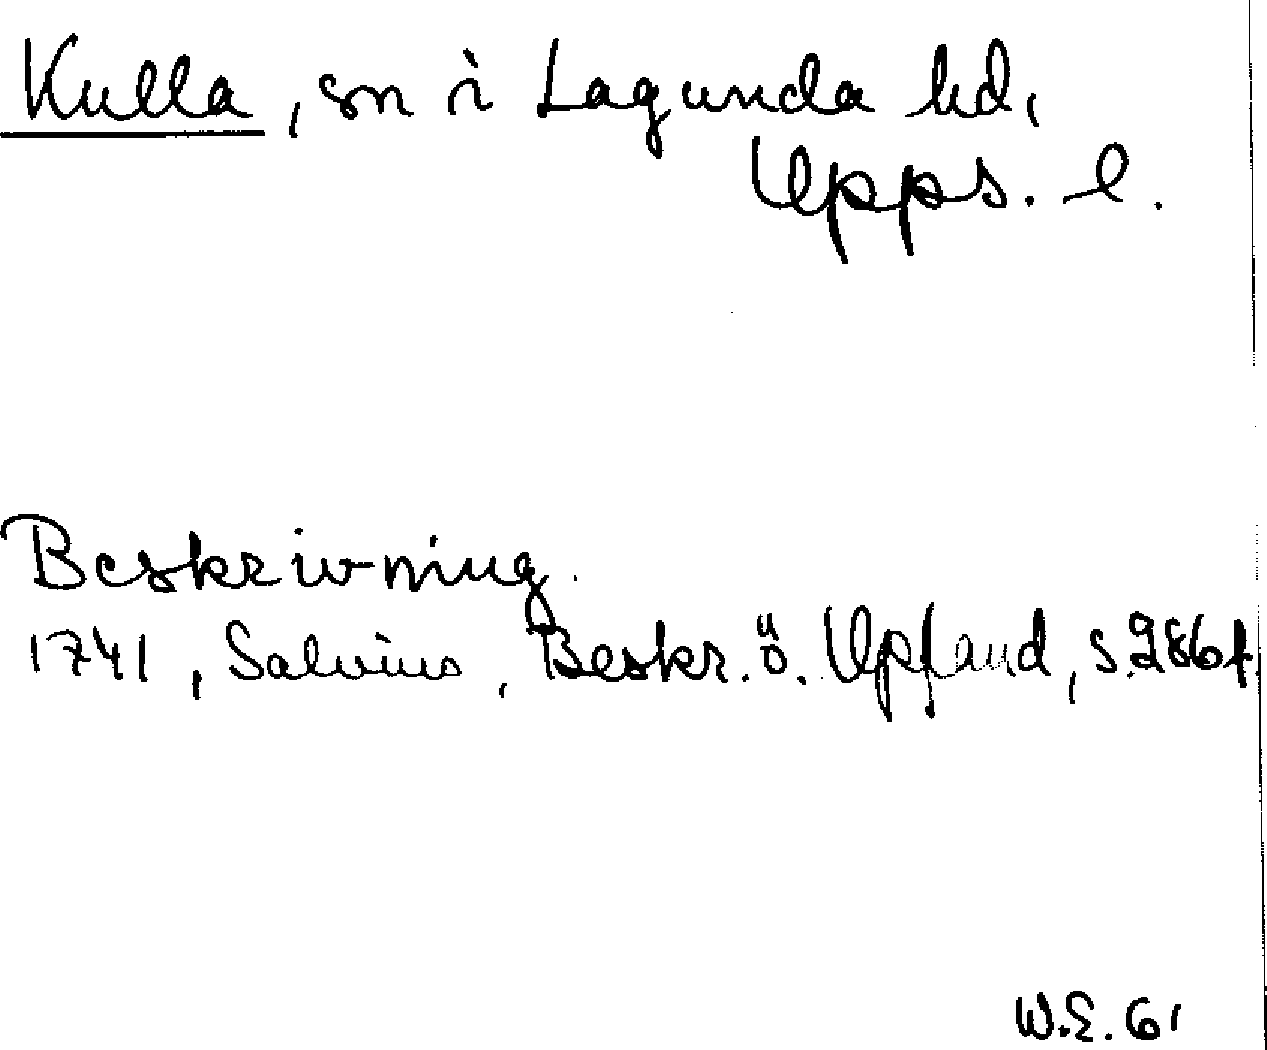 Kulla, sn i Lagunda hd,
Upps. l.
Beskrivning.
1741, Salvius, Beskr. ö. Upland, s. 286 f.
W.E. 61